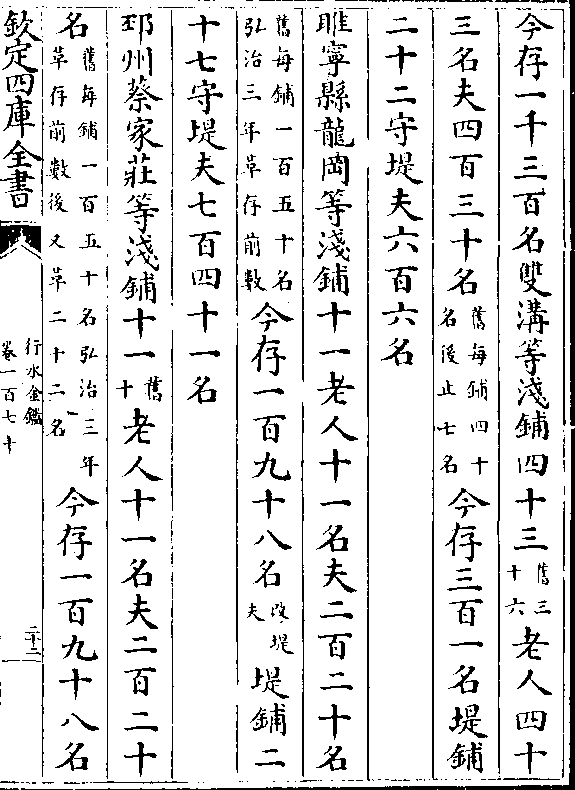 今存一千三百名雙溝等淺鋪四十三舊三十六老人四十
三名夫四百三十名舊每鋪四十名後止七名今存三百一名堤鋪
二十二守堤夫六百六名
睢寧縣龍岡等淺鋪十一老人十一名夫二百二十名
舊每鋪一百五十名弘治三年革存前數今存一百九十八名改堤夫堤鋪二
十七守堤夫七百四十一名
邳州蔡家莊等淺鋪十一舊十老人十一名夫二百二十
名舊每鋪一百五十名弘治三年革存前數後又革二十二名今存一百九十八名
欽定四庫全書
行水金鑑
卷一百七十
二十二